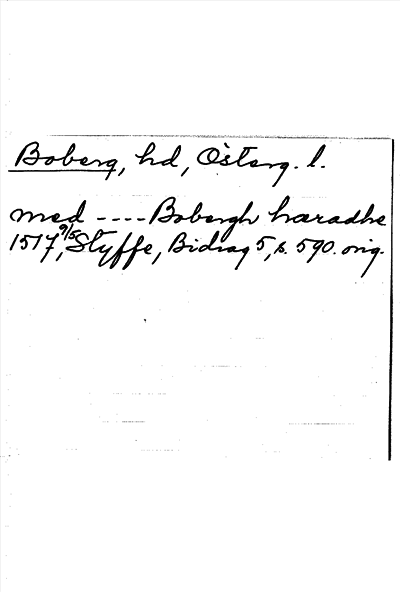 Boberg, hd, Österg. l.
med ---- Bobergh hæradhe
1517 9/5 Styffe, Bidrag 5, s. 590. orig.